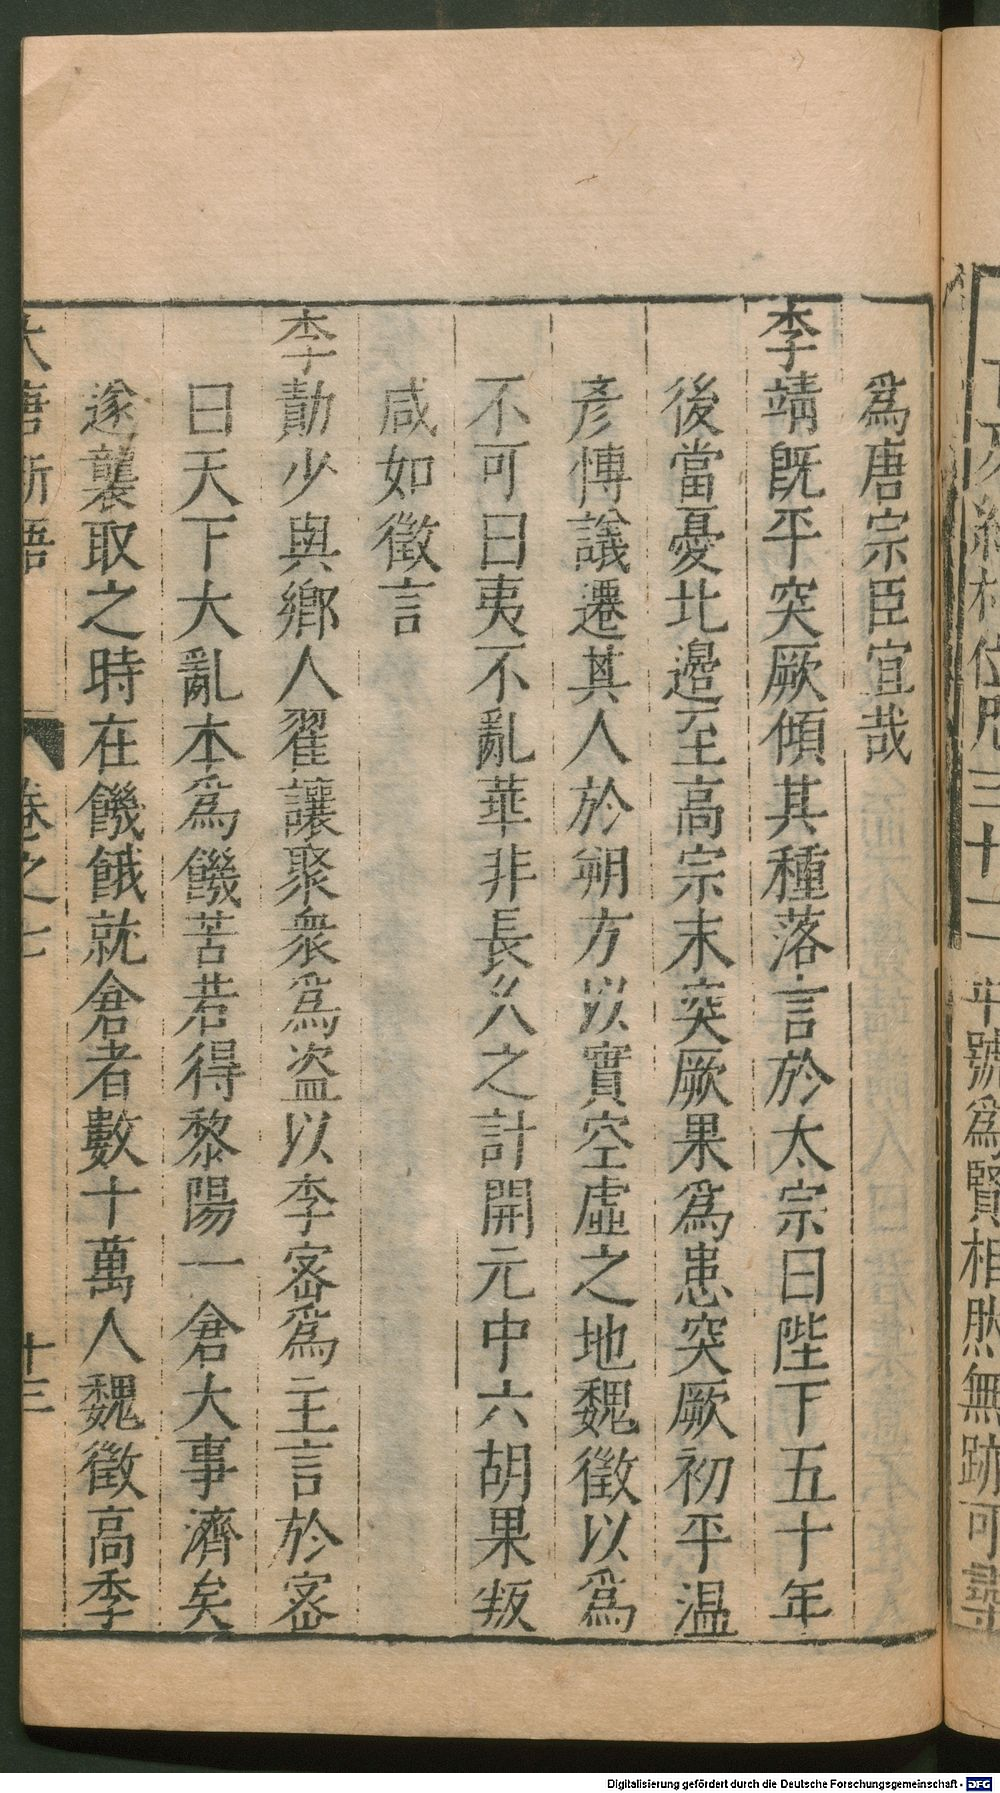 爲唐宗臣宜哉
李靖旣平突厥傾其種落言於太宗曰陛下五十年
後當憂北邉至高宗末突厥果爲患突厥初平温
彥愽議遷其人於朔方以實空虛之地魏徵以爲
不可曰夷不亂華非長久之計開元中六胡果叛
咸如徵言
李勣少與鄉人翟讓聚衆爲盜以李密爲主言於密
曰天下大亂本爲饑苦若得黎陽一倉大事濟矣
遂襲取之時在饑餓就倉者數十萬人魏徵高季
大唐新語 卷之七 十三
Digitalisierung gefördert durch die Deutsche Forschungsgemeinschaft - DFG